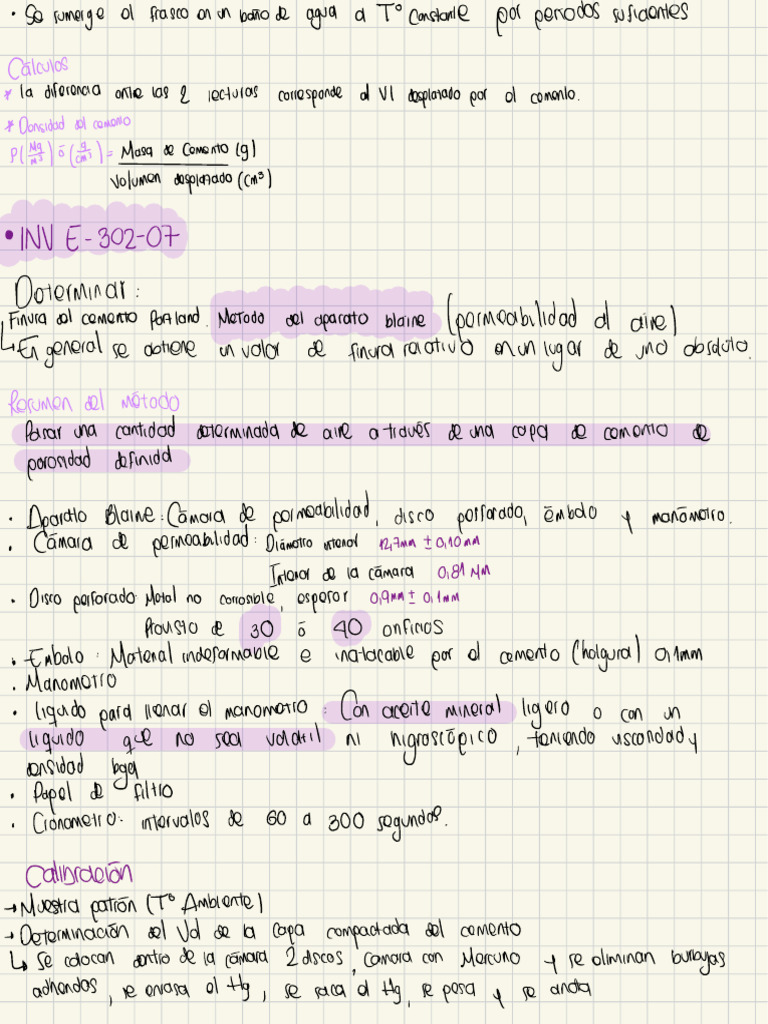 • Se sumerge el frasco en un baño de agua a T° constante por periodos suficientes
Cálculos
* la diferencia entre las 2 lecturas corresponde al Vl desplazado por el cemento.
* Densidad del cemento
P(Mg/m³) ō (g/cm³) = Masa de Cemento (g)
Volumen desplazado (cm³)
• INV E-302-07
Determinar:
Finura del cemento Portland. Método del aparato blaine (permeabilidad al aire)
↳ En general se obtiene un valor de finura relativo en un lugar de uno absoluto.
Resumen del método
Pasar una cantidad determinada de aire a través de una capa de cemento de
porosidad definida
• Aparato Blaine: Cámara de permeabilidad, disco perforado, émbolo y manómetro.
• Cámara de permeabilidad: Diámetro interior 12,7mm ± 0,10mm
Interior de la cámara 0,81 Nm
• Disco perforado: Metal no corrosible, espesor 0,9mm ± 0,1mm
Provisto de 30 ō 40 orificios
• Embolo: Material indeformable e inatacable por el cemento (holgura) 0,1mm
• Manometro
• liquido para llenar el manometro: Con aceite mineral ligero o con un
liquido que no sea volatil ni higroscópico, teniendo viscosidad y
densidad baja
• Papel de filtro
• Cronometro: intervalos de 60 a 300 segundos.
Calibración
→ Muestra patrón (T° Ambiente)
→ Determinación del Vd de la capa compactada del cemento
↳ Se colocan dentro de la cámara 2 discos, Camara con Mercurio y se eliminan burbujas
adheridas, se enrasa el Hg, se saca el Hg, se pesa y se anota